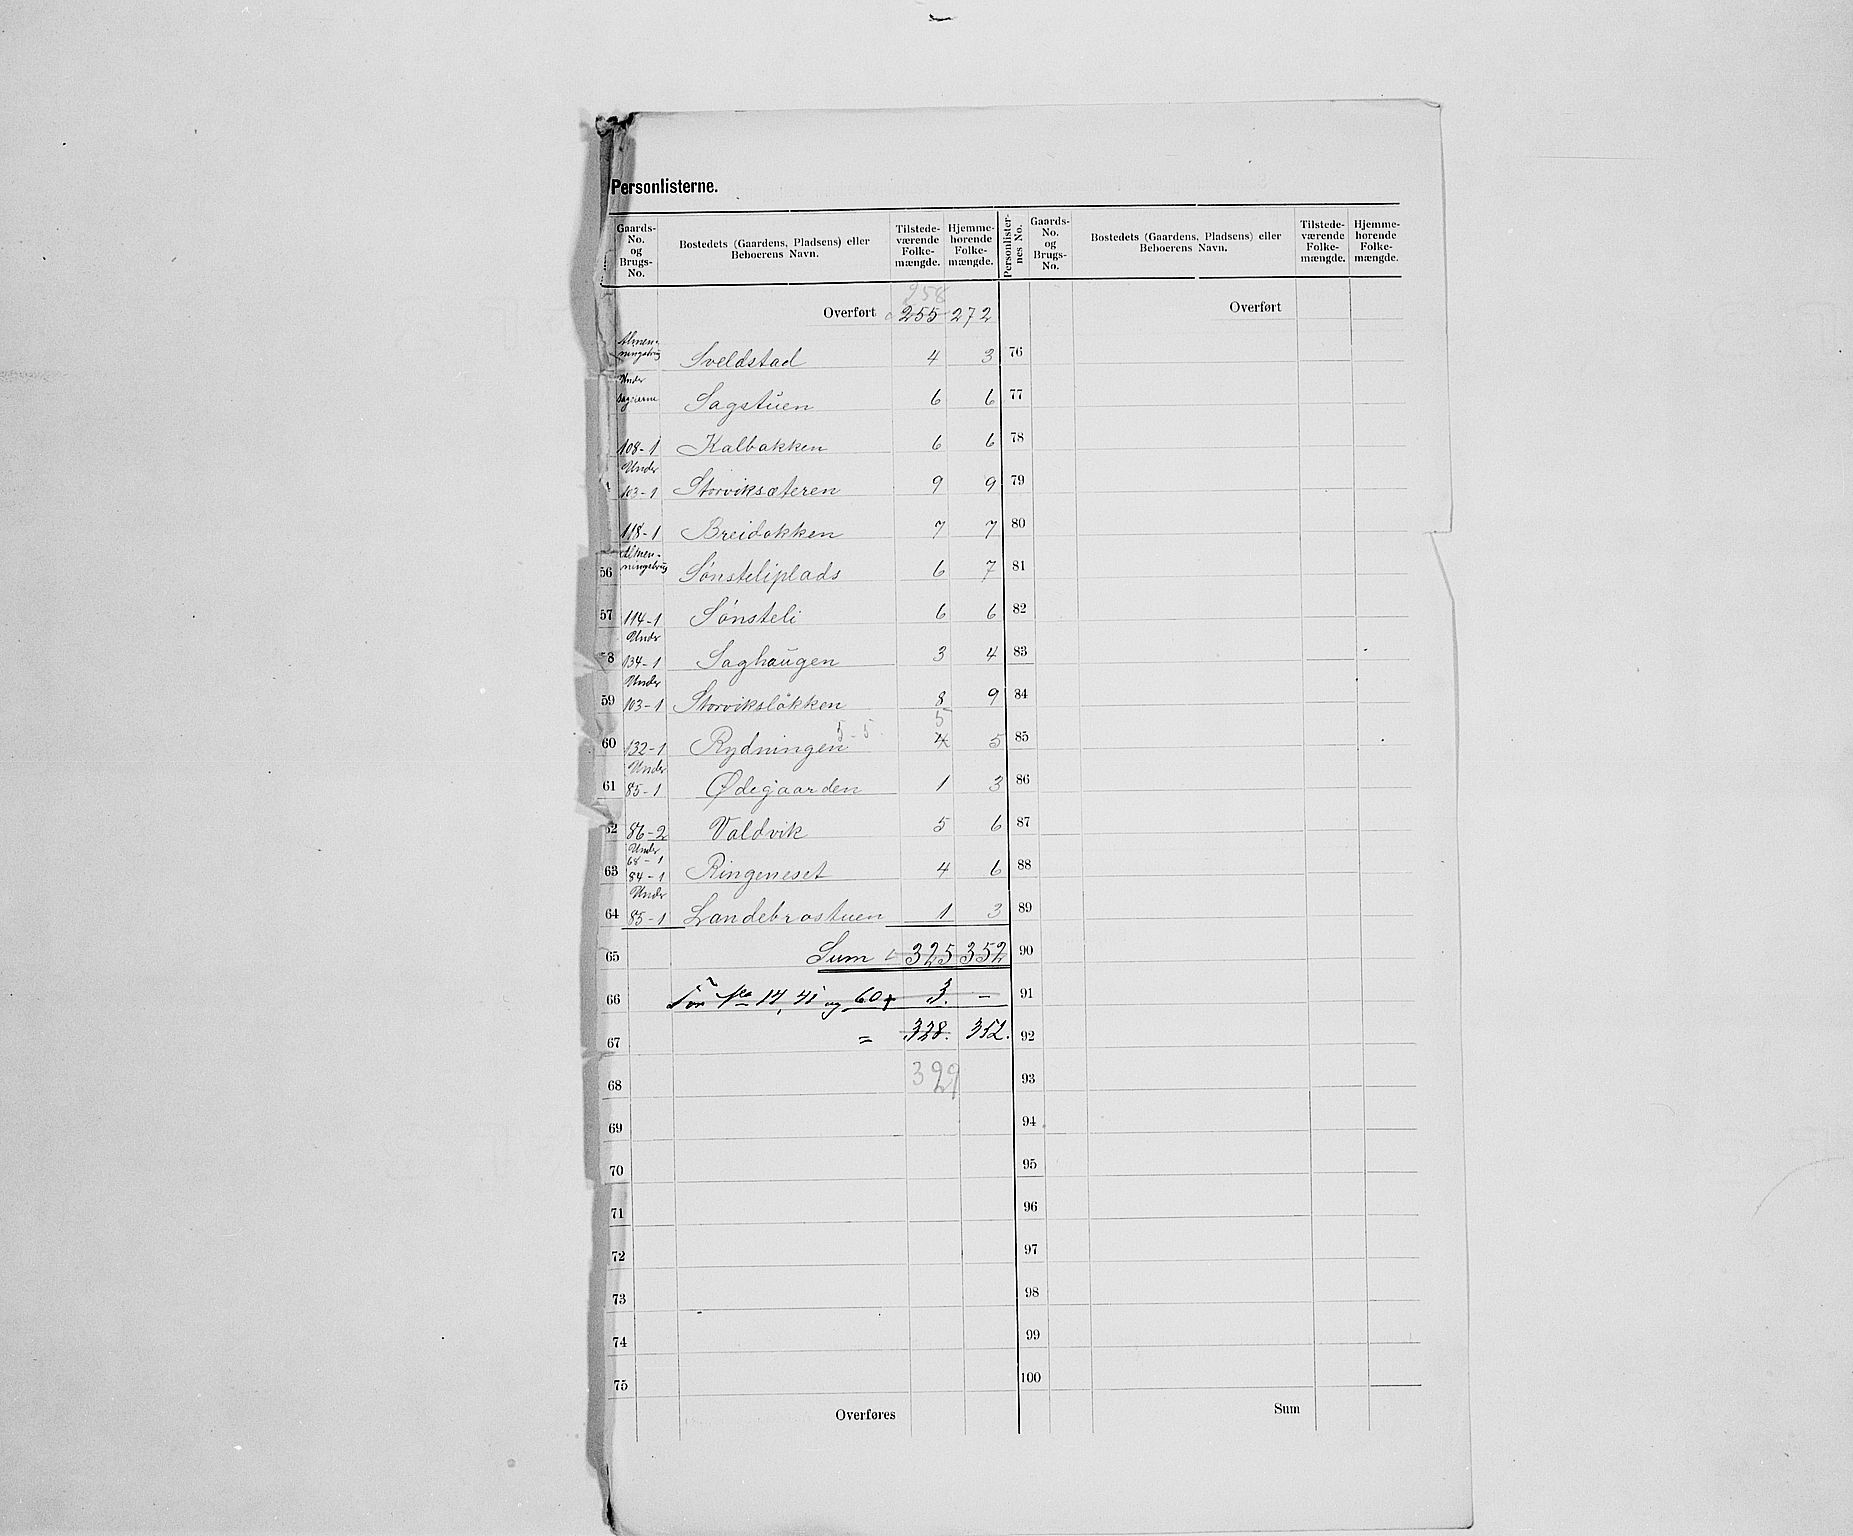 Personlisterne.
Gaards-No. og Brugs-No. Bostedets (Gaardens, Pladsens) eller Beboerens Navn. Tilstede-værende Folke-mængde. Hjemme-hørende Folke-mængde. Personlister-nes No. Gaards-No. og Brugs-No. Bostedets (Gaardens, Pladsens) eller Beboerens Navn. Tilstede-værende Folke-mængde. Hjemme-hørende Folke-mængde.
258
Overført 255 272 Overført
Almen-ningsbrug Sveldstad 4 3 76
Under Sageierne Sagstuen 6 6 77
108-1 Kalbakken 6 6 78
Under 103-1 Storviksæteren 9 9 79
118-1 Breidakken 7 7 80
56 Almen-ningsbrug Sønsteliplads 6 7 81
57 114-1 Sønsteli 6 6 82
58 Under 134-1 Saghaugen 3 4 83
59 Under 103-1 Storviksløkken 8 9 84
60 132-1 Rydningen 5-5 5 4 5 85
61 Under 85-1 Ødegaarden 1 3 86
62 86-2 Valdvik 5 6 87
63 Under 68-1 84-1 Ringeneset 4 6 88
64 Under 85-1 Landebrostuen 1 3 89
65 Sum 325 352 90
66 For No 14, 41 og 60 + 3. - 91
67 = 328. 352. 92
68 329 93
69 94
70 95
71 96
72 97
73 98
74 99
75 100
Overføres Sum